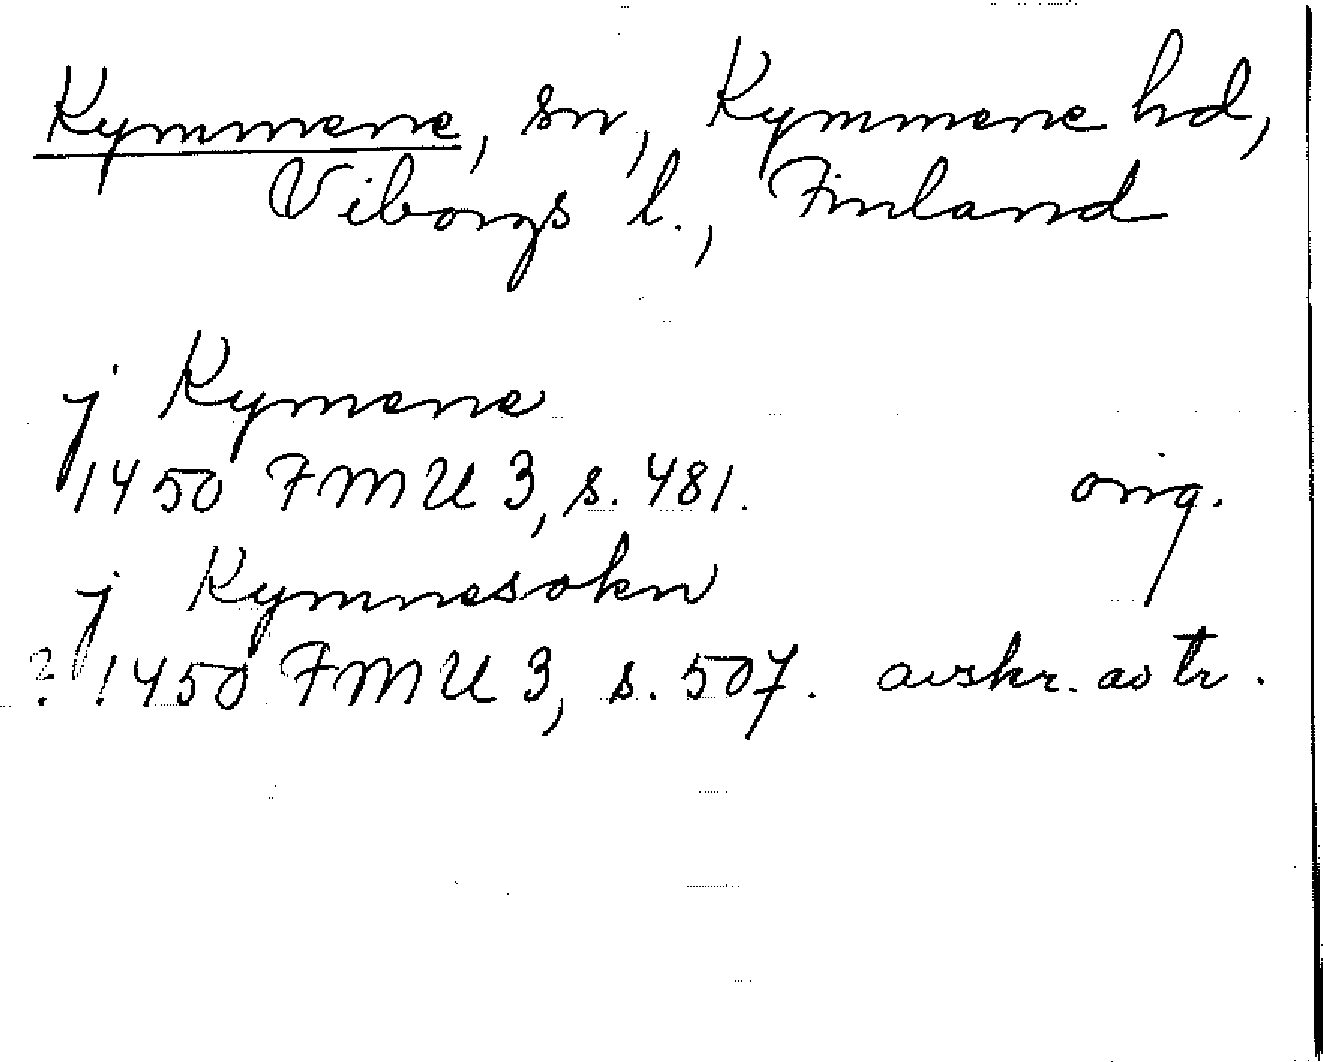 Kymmene, sn, Kymmene hd,
Viborgs l., Finland
j Kymene
1450 FMU 3, s. 481. orig.
j Kymnesokn
? 1450 FMU 3, s. 507. avskr. av tr.